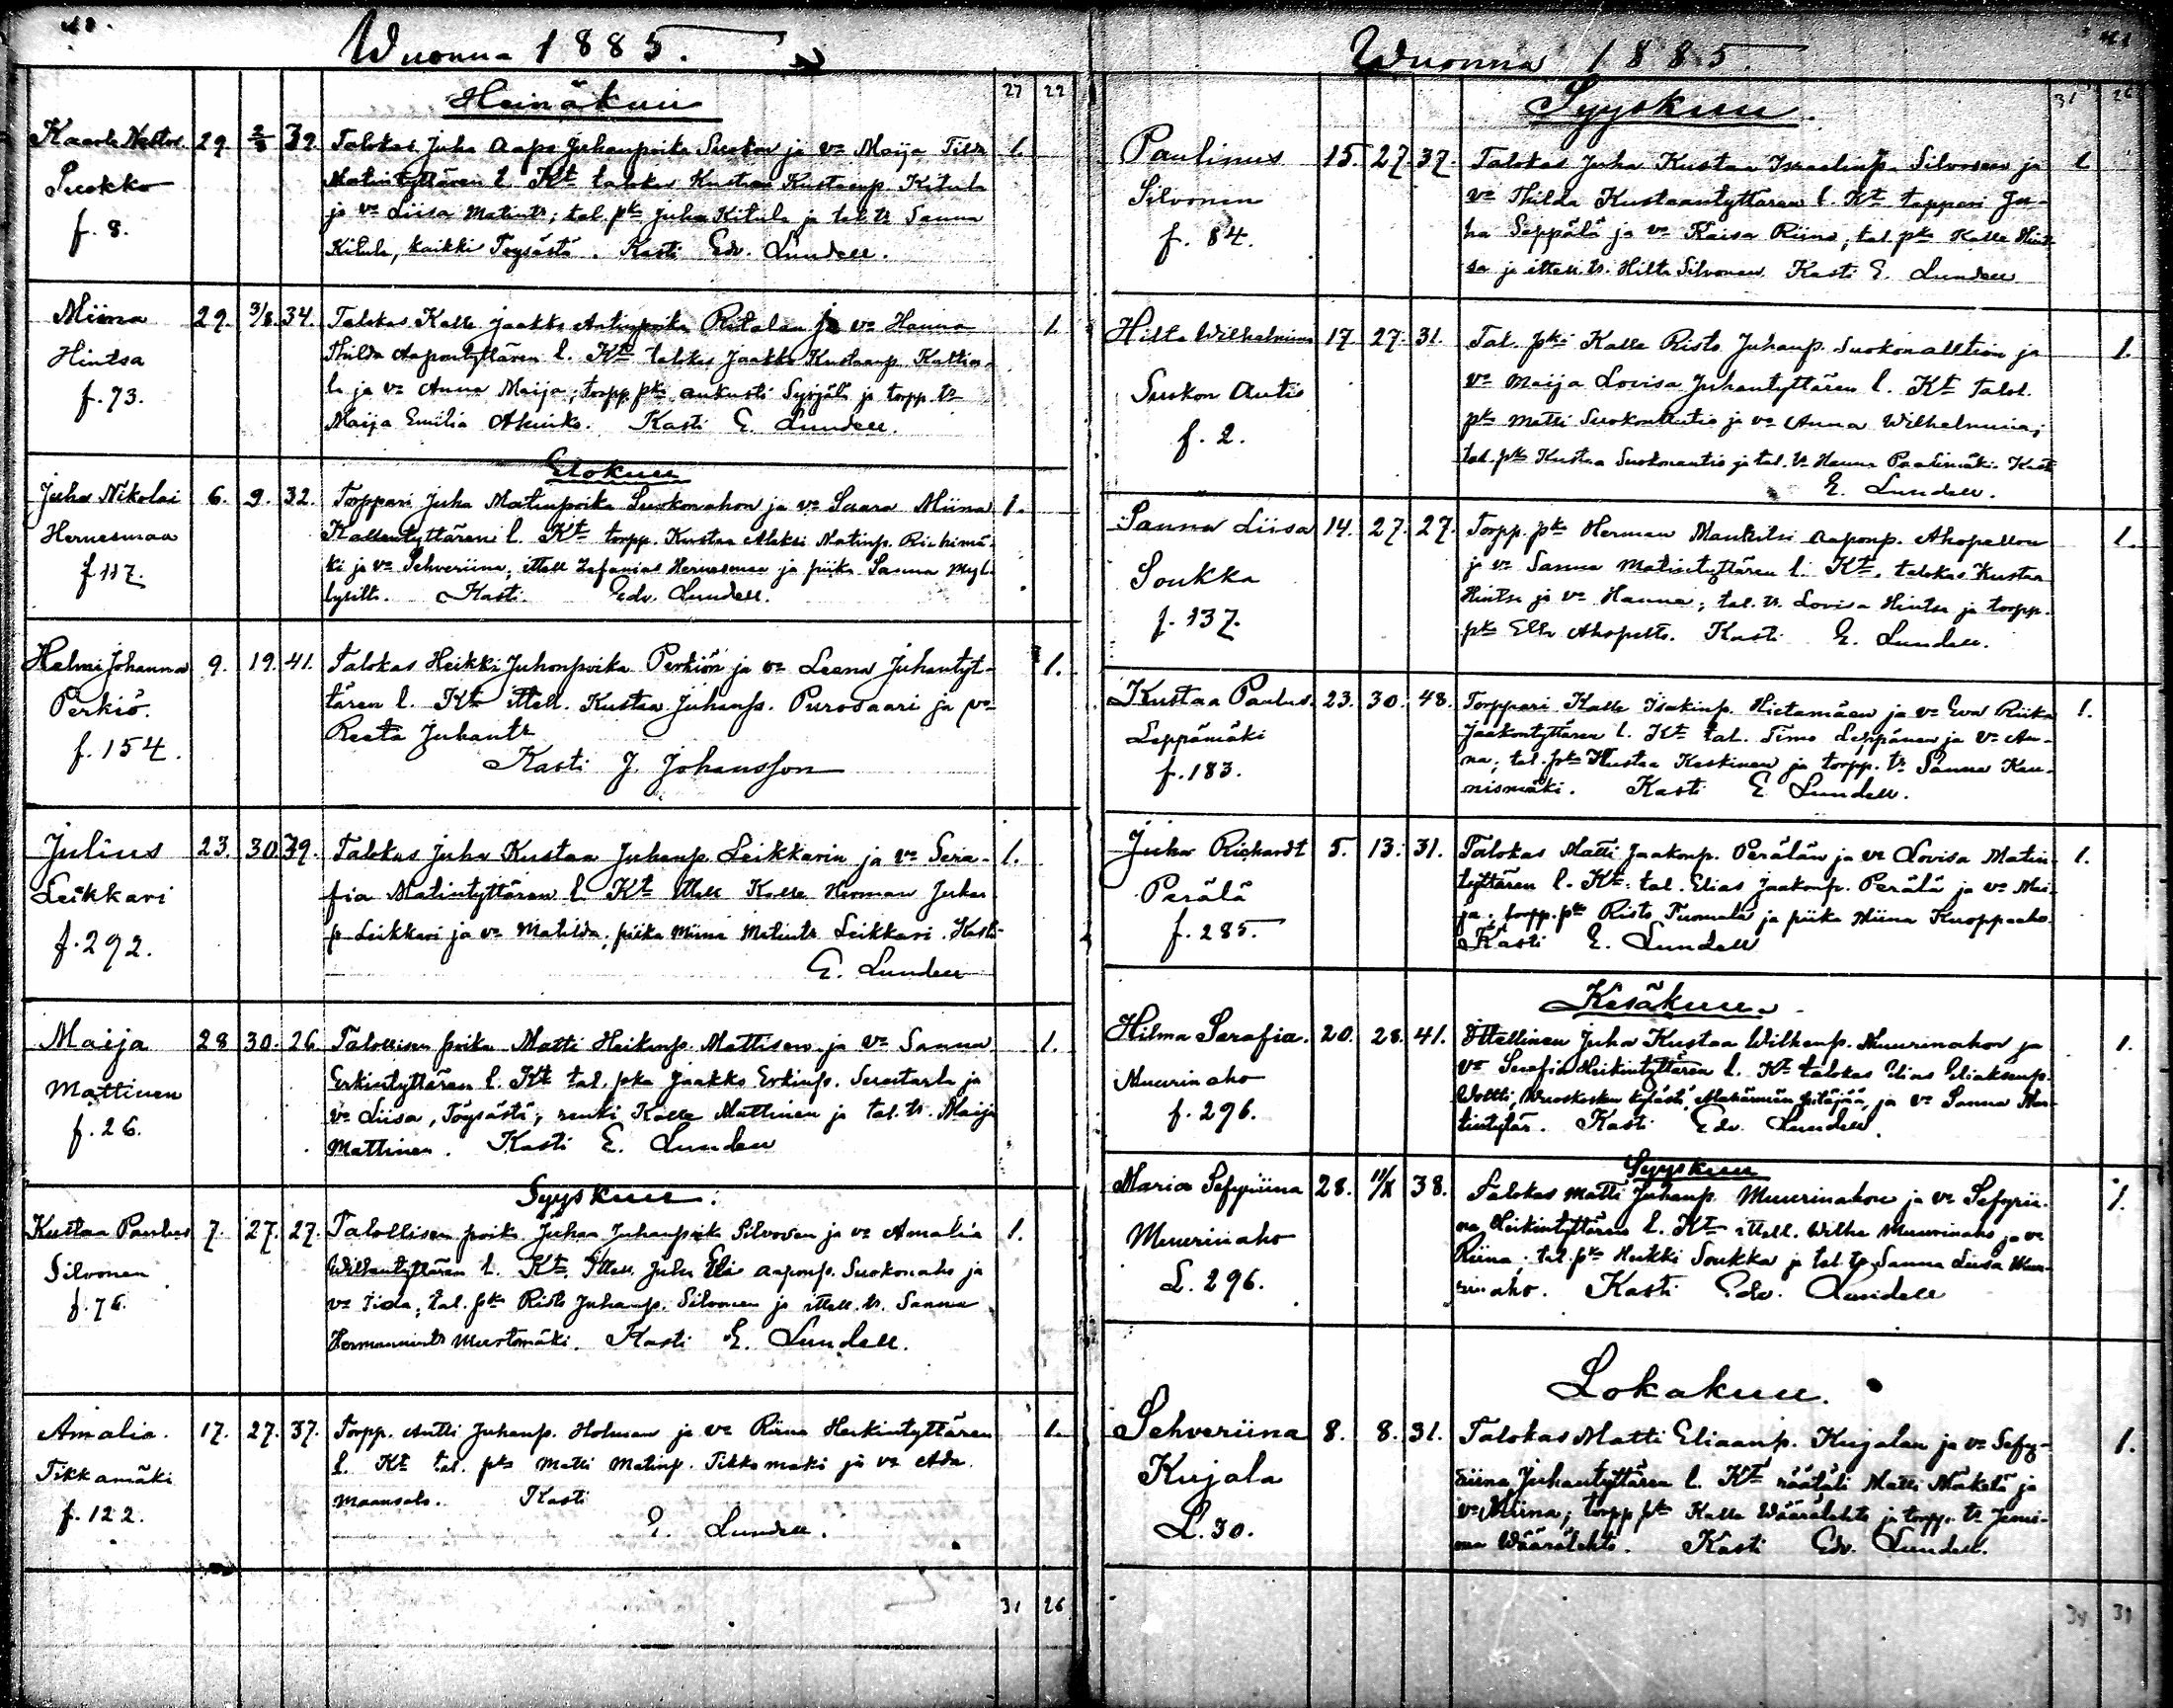 Wuonna 1885.
27 22
Heinäkuu
Kaarle Nestor 29. 2/8 39. Talokas Juha Aape Juhanpoika Suokon ja vo Maija Tilda 1.
Suokko Matintyttären l. Kt talokas Kustaa Kustaanp. Kitula
f. 8. ja vo Liisa Matintr; tal. pka Juha Kitula ja tal. tr Sanna
Kitula, kaikki Töysästä. Kasti Edv. Lundell.
Miina 29. 9/8. 34. Talokas Kalle Jaakko Antinpoika Ritalan ja vo Hanna 1.
Hintsa Thilda Aapontyttären l. Kt talokas Jaakko Kustaanp. Kattila-
f. 73. la ja vo Anna Maija; torpp. pka Aukusti Syrjälä ja torpp. tr
Maija Emilia Kasti E. Lundell.
Elokuu
Juha Nikolai 6. 9. 32. Torppari Juha Matinpoika Suokonahon ja vo Saara Miina 1.
Hernesmaa Kallentyttären l. Kt torpp. Kustaa Aleksi Matinp. Riihimä-
f 117. ki ja vo Sehveriina; ittell Zefanias Hernesmaa ja piika Sanna Myl-
lysilta. Kasti Edv. Lundell.
Helmi Johanna 9. 19. 41. Talokas Heikki Juhonpoika Perkiön ja vo Leena Juhantyt- 1.
Perkiö. tären l. Kt ittell. Kustaa Juhanp. Purosaari ja vo
f. 154. Reeta Juhantr
Kasti J. Johansson
Julius 23. 30 39. Talokas Juha Kustaa Juhanp. Leikkarin ja vo Sera- 1.
Leikkari fia Matintyttären l. Kt ittell Kalle Herman Juhan
f. 292. p. Leikkari ja vo Matilda; piika Miina Matintr Leikkari. Kasti
E. Lundell
Maija 28 30. 26. Talollisen poika Matti Heikinp. Mattisen ja vo Sanna 1.
Mattinen Erkintyttären l. Kt tal. pka Jaakko Erkinp. ja
f. 26. vo Liisa, Töysästä; renki Kalle Mattinen ja tal. tr. Maija
Mattinen. Kasti E. Lundell
Syyskuu.
Kustaa Paulus 7. 27. 27. Talollisen poika Juhan Juhanpoika Silvosen ja vo Amalia 1.
Silvonen Wilhentyttären l. Kt. Ittell. Juha Elia Aaponp. Suokonaho ja
f. 76. vo Fiia; tal. pka Risto Juhanp. Silvonen ja ittell. tr. Sanna
Hermannintr Mustamäki. Kasti E. Lundell.
Amalia. 17. 27. 37. Torpp. Antti Juhanp. Holman ja vo Riina Heikintyttären 1.
Tikkamäki l. Kt tal. pka Matti Matinp. Tikkamäki ja vo Ada
f. 122. Maansalo. Kasti
E. Lundell.
31 26
Wuonna 1885.
Syyskuu. 31 26
Paulinus 15. 27. 37. Talokas Juha Kustaa Israelinp. Silvosen ja 1.
Silvonen vo Thilda Kustaantyttären l. Kt torppari Ju-
f. 84. ha Seppälä ja vo Kaisa Riina; tal. pka Kalle Hint-
sa ja ittell. tr. Hilta Silvonen. Kasti E. Lundell
Hilta Wilhelmina 17. 27. 31. Tal. pka Kalle Risto Juhanp. Suokonaution ja 1.
Suokon Autio vo Maija Lovisa Juhantyttären l. Kt talol.
f. 2. pka Matti Suokonautio ja vo Anna Wilhelmina;
tal. pka Kustaa Suokonautio ja tal. tr Hanna Paalimäki. Kasti
E. Lundell.
Sanna Liisa 14. 27. 27. Torpp. pka Herman Mankilsi Aaponp. Ahopellon 1.
Soukka ja vo Sanna Matintyttären l. Kt. talokas Kustaa
f. 137. Hintsa ja vo Hanna; tal. tr. Lovisa Hintsa ja torpp.
pka Elia Ahopelto. Kasti E. Lundell.
Kustaa Paulus. 23. 30. 48. Torppari Kalle Isakinp. Hietamäen ja vo Eva Riika 1.
Leppämäki Jaakontyttären l. Kt tal. Simo Leppänen ja vo An-
f. 183. na; tal. pka Kustaa Keskinen ja torpp. tr Sanna Kau-
nismäki. Kasti E Lundell.
Juha Richardt 5. 13. 31. Talokas Matti Jaakonp. Perälän ja vo Lovisa Matin- 1.
Perälä tyttären l. Kt. tal. Elias Jaakonp. Perälä ja vo Mai-
f. 285. ja; torpp. pka Risto Tuomala ja piika Miina Kuoppaaho.
Kasti E. Lundell
Kesäkuu.
Hilma Serafia. 20. 28. 41. Ittellinen Juha Kustaa Wilhenp. Muurinahon ja 1.
Muurinaho vo Serafia Heikintyttären l. Kt talokas Elias Eliaksenp.
f. 296. Woltti, Wuoskosken kylästä, Alahärmän pitäjää, ja vo Sanna Mar-
tintytär. Kasti Edv. Lundell.
Syyskuu
Maria Sefyriina 28. 11/X 38. Talokas Matti Juhanp. Muurinahon ja vo Sefyrii- 1.
Muurinaho na Heikintyttären l. Kt ittell. Wilho Muurinaho ja vo
L. 296. Riina; tal. pka Heikki Soukka ja tal. tr Sanna Liisa Muu-
rinaho. Kasti Edv. Lundell
Lokakuu.
Sehveriina 8. 8. 31. Talokas Matti Eliaanp. Kujalan ja vo Sefy- 1.
Kujala riina Juhantyttären l. Kt räätäli Matti Mäkelä ja
L. 30. vo Miina; torpp pka Kalle Wäärälehto ja torpp. tr Jemi-
ma Wäärälehto. Kasti Edv. Lundell.
34 31